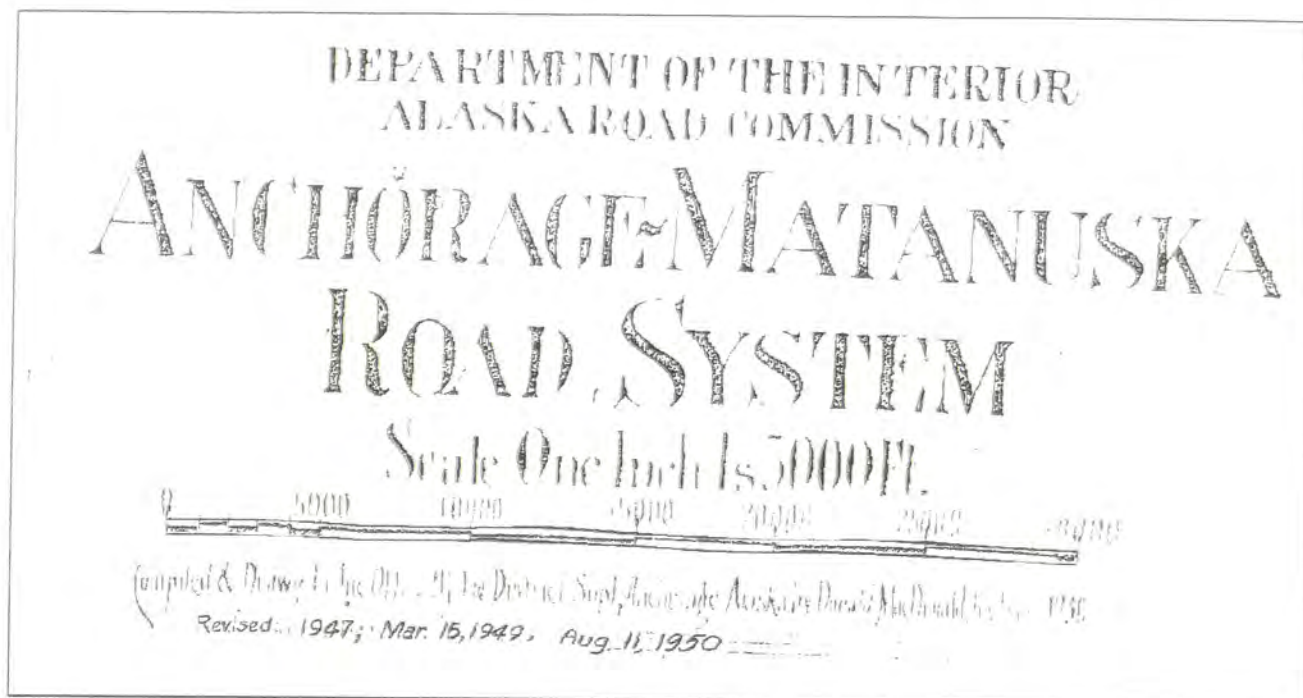 DEPARTMENT OF THE INTERIOR
ALASKA ROAD COMMISSION
ANCHORAGE~MATANUSKA
ROAD SYSTEM
Scale One Inch Is 5000 Ft.
0 5000 10000 15000 20000 25000 30000
Compiled & Drawn In the Office Of The District Supt. Anchorage Alaska by Donald MacDonald
Revised: 1947; Mar. 15, 1949, Aug. 11, 1950